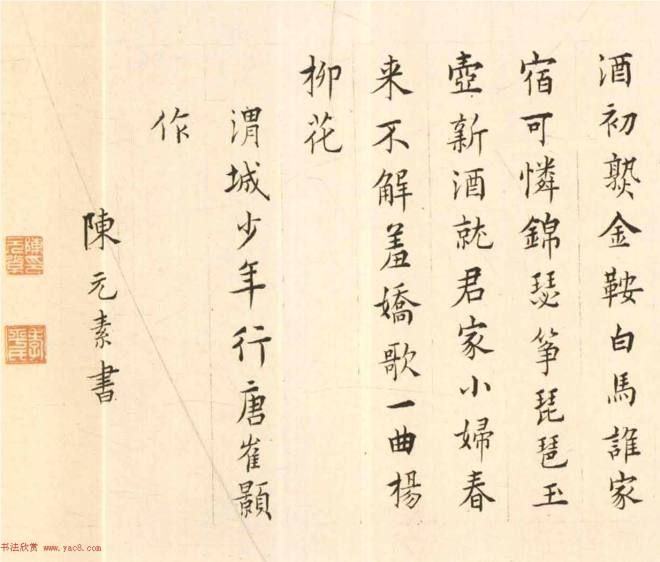 酒初熟金鞍白馬誰家
宿可憐錦瑟筝琵琶玉
壺新酒就君家小婦春
来不解羞嬌歌一曲楊
柳花
渭城少年行唐崔顥
作
陳元素書
书法欣赏 www.yac8.com